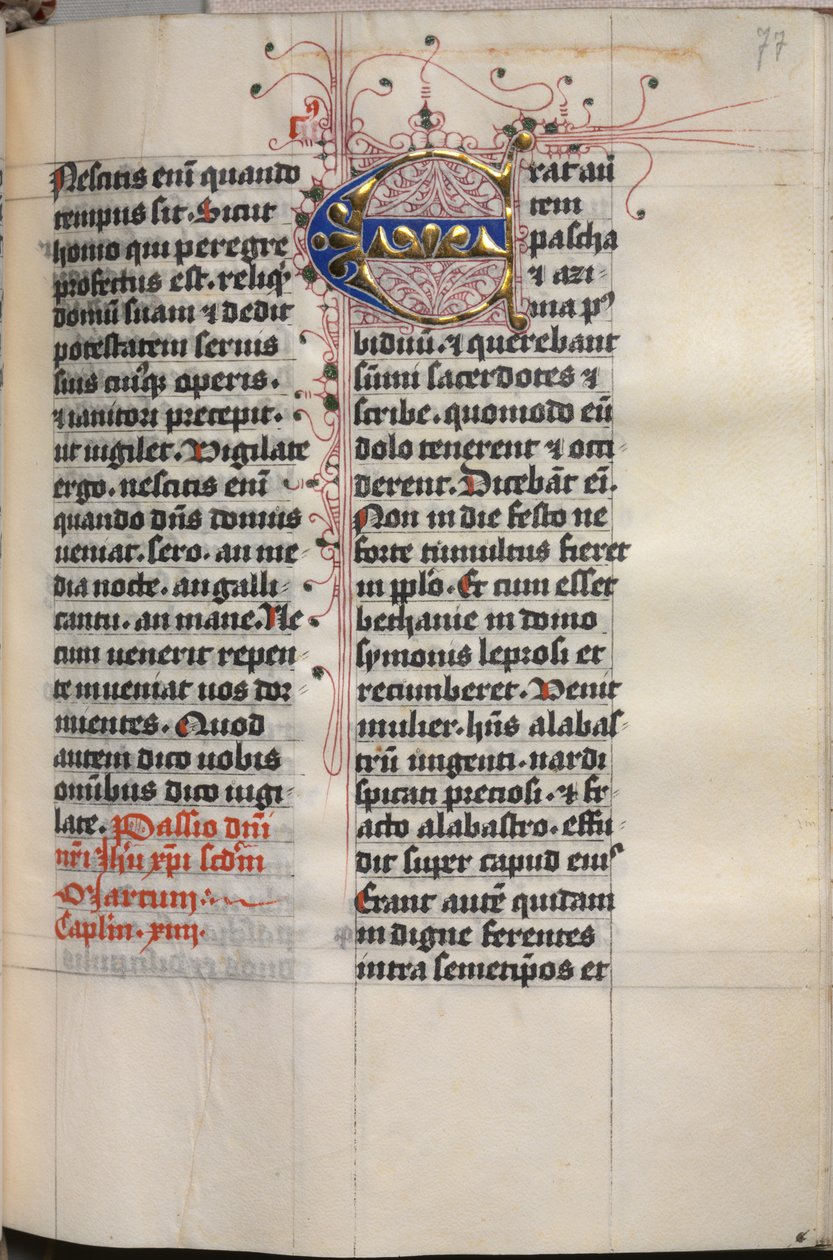 77
Nescitis eni̅ quando
tempus sit. Sicut
homo qui peregre
profectus est. reliqͥt
domu̅ suam ⁊ dedit
potestatem seruis
suis cuiꝰq̨ operis.
⁊ ianitori precepit.
ut uigilet. Vigilate
ergo. nescitis eni̅
quando dn̅s domus
ueniat. sero. an me⸗
dia nocte. an galli⸗
cantu. an mane. Ne
cum uenerit repen⸗
te inueniat uos dor⸗
mientes. Quod
autem dico uobis
omi̅bus dico uigi⸗
late. Passio dn̅i
nr̅i ihu̅ xp̅i scd̅m
Marcum
Caplm̅. xiiij.
Erat au̅
tem
pascha
⁊ azi⸗
ma pꝰ
biduu̅. ⁊ querebant
su̅mi sacerdotes ⁊
scribe. quomodo eu̅
dolo tenerent ⁊ occi
derent. Diceba̅t ei̅.
Non in die festo ne
forte tumultus fieret
in pp̅lo. Et cum esset
bethanie in domo
symonis leprosi et
recumberet. Venit
mulier. hn̅s alabas⸗
tru̅ ungenti. nardi
spicati preciosi. ⁊ fr⸗
acto alabastro. effu⸗
dit super capud eiꝰ
Erant aute̅ quidam
indigne ferentes
intra semetip̅os et